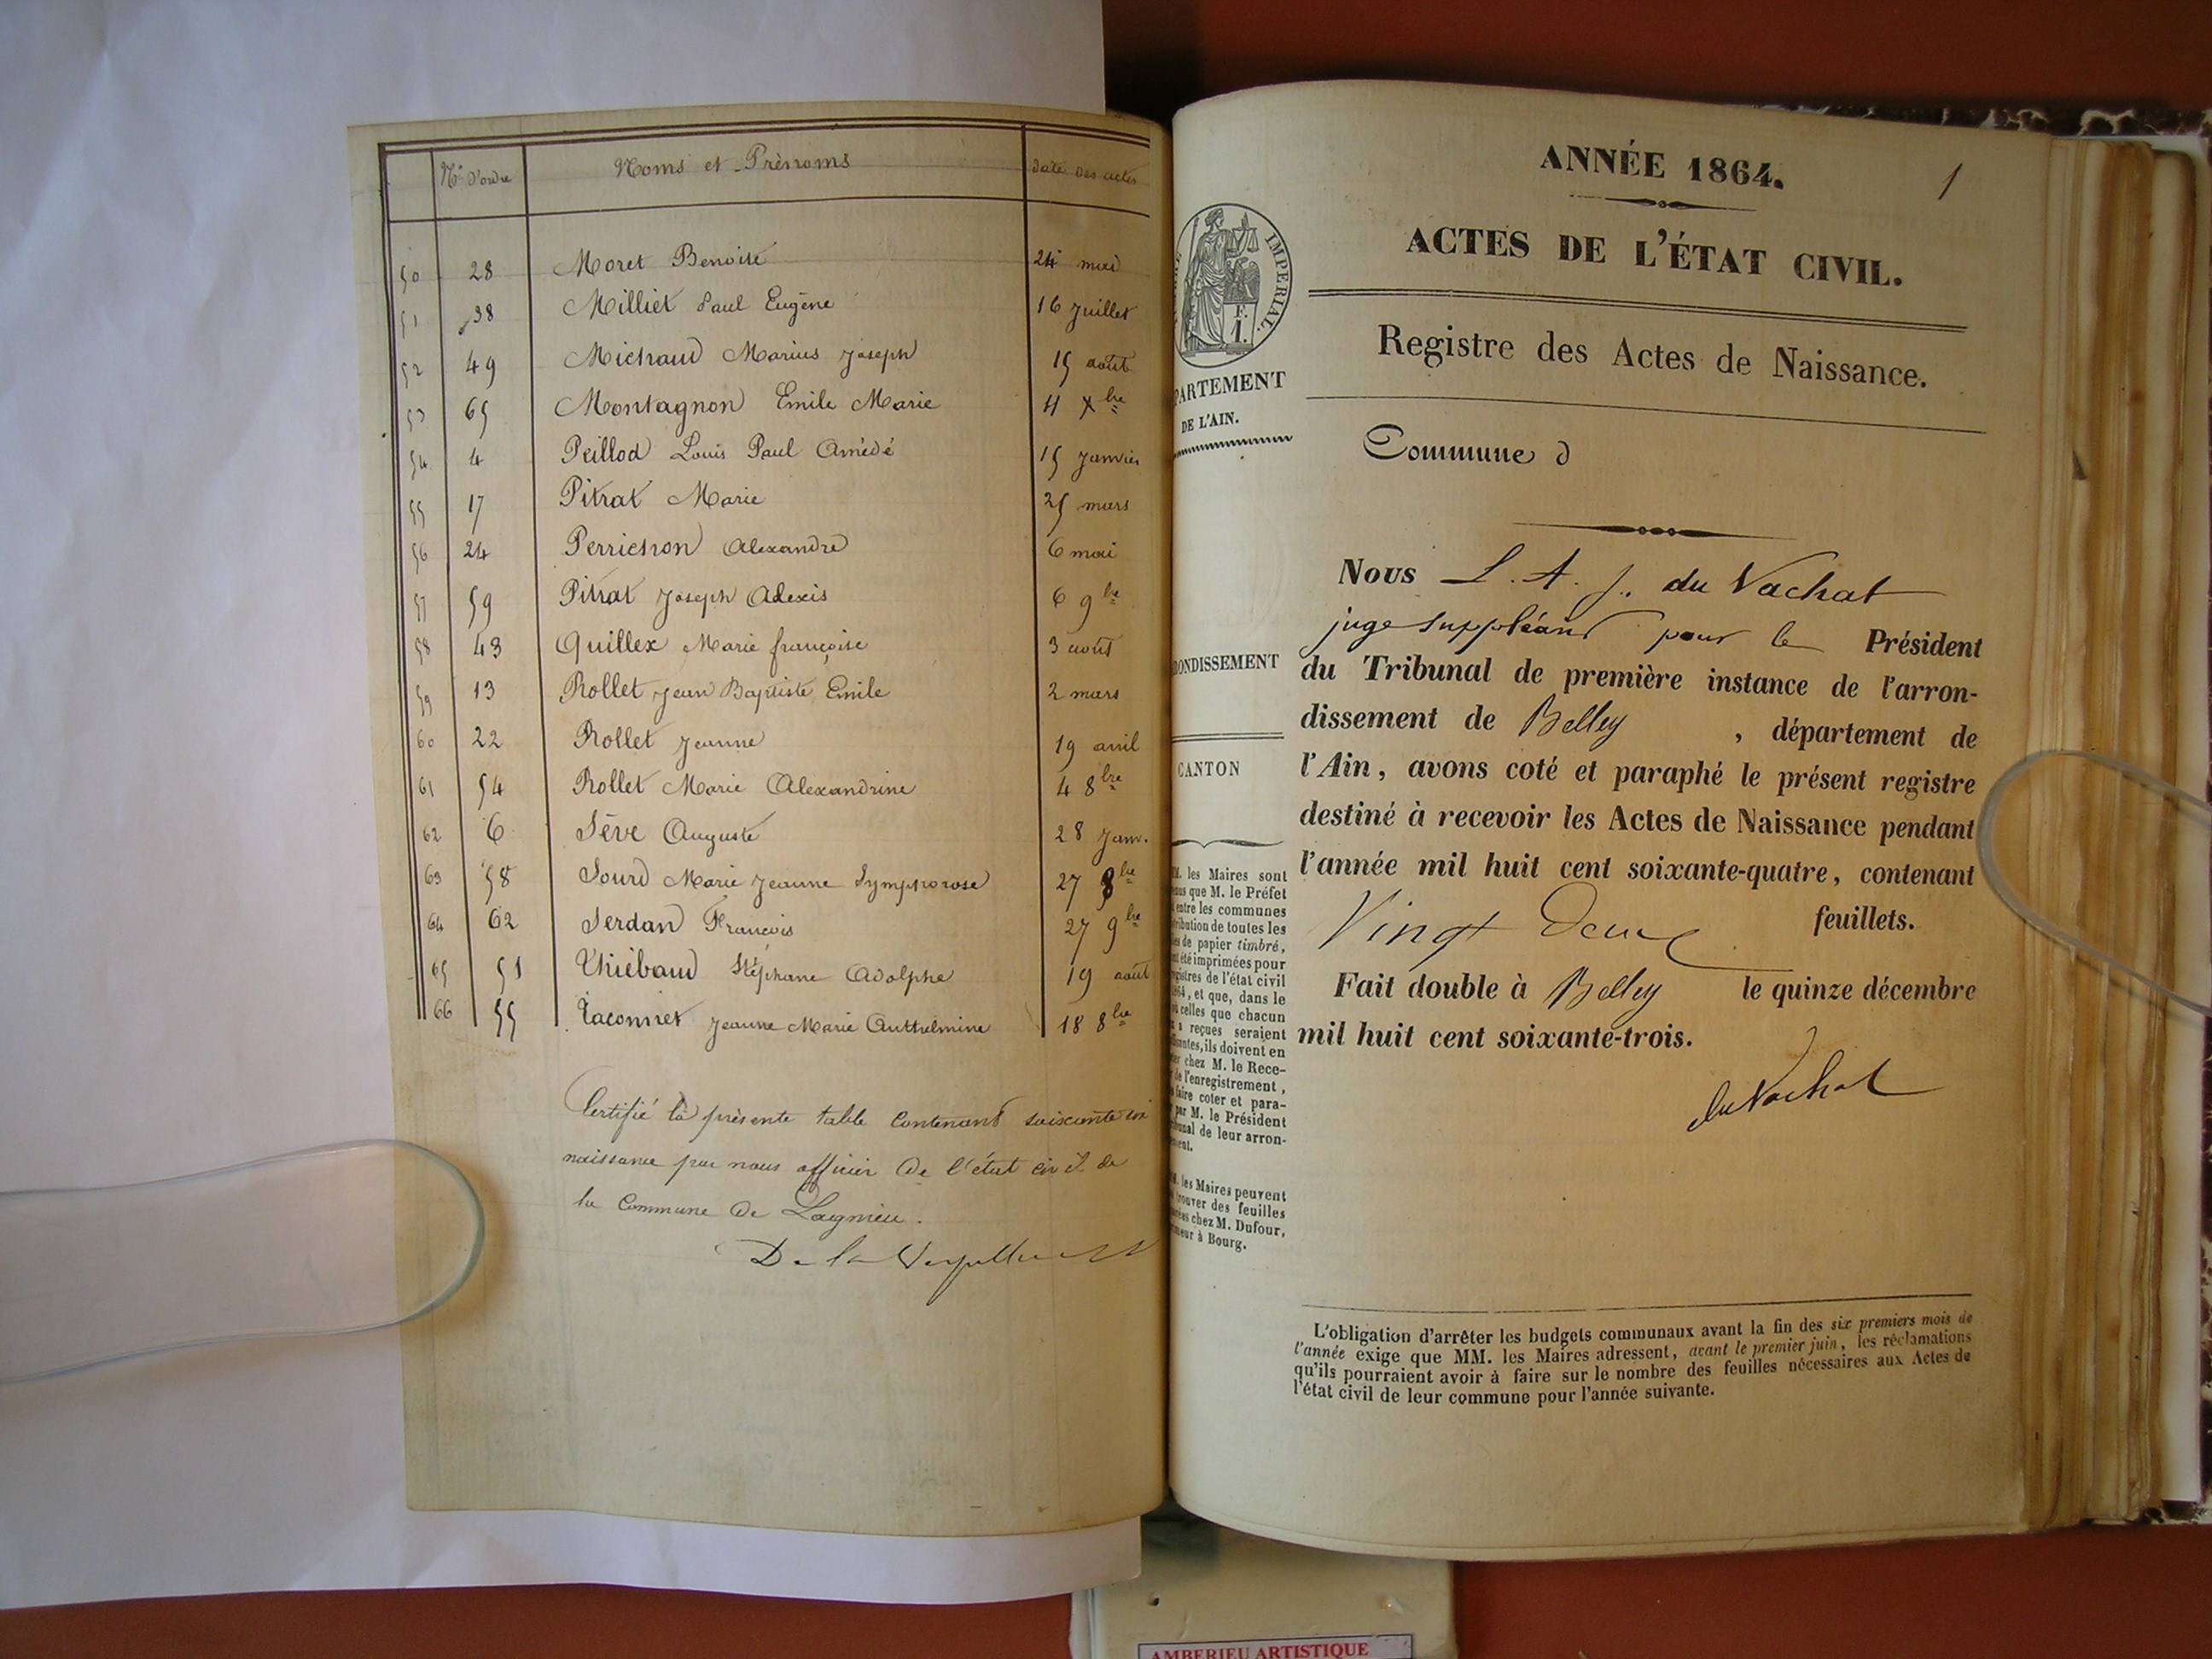 N° d'ordre Noms et Prénoms date des actes
50 28 Moret Benoite 24 mai
51 38 Milliet Paul Eugène 16 Juillet
52 49 Michaud Marius Joseph 15 août
53 65 Montagnon Emile Marie 11 Xbre
54 4 Peillod Louis Paul Amédé 15 Janvier
55 17 Pitrat Marie 25 mars
56 24 Perrichon Alexandre 6 mai
57 59 Pitrat Joseph Alexis 6 9bre
58 43 Quillex Marie françoise 3 août
59 13 Rollet Jean Baptiste Emile 2 mars
60 22 Rollet Jeanne 19 avril
61 54 Rollet Marie Alexandrine 4 8bre
62 6 Sève Auguste 28 Janv.
63 58 Sourd Marie Jeanne Symphorose 27 8bre
64 62 Serdan François 27 9bre
65 51 Thiébaud Stéphane Adolphe 19 août
66 55 Taconnet Jeanne Marie Anthelmine 18 8bre
Certifié la présente table contenant soixante six
naissance par nous officier de l'état civil de
la Commune de Lagnieu.
ANNÉE 1864. 1
ACTES DE L'ÉTAT CIVIL.
Registre des Actes de Naissance.
IMPERIAL.
F.
1.
PARTEMENT
DE L'AIN.
Commune d
Nous L. A. J. du Vachat
juge suppléant pour le Président
du Tribunal de première instance de l'arron-
dissement de Belley, département de
l'Ain, avons coté et paraphé le présent registre
destiné à recevoir les Actes de Naissance pendant
l'année mil huit cent soixante-quatre, contenant
Vingt Deux feuillets.
Fait double à Belley le quinze décembre
mil huit cent soixante-trois.
du Vachat
ONDISSEMENT
CANTON
M. les Maires sont
que M. le Préfet
entre les communes
tribution de toutes les
de papier timbré,
été imprimées pour
gistres de l'état civil
, et que, dans le
celles que chacun
reçues seraient
, ils doivent en
chez M. le Rece-
de l'enregistrement,
faire coter et para-
par M. le Président
de leur arron-
les Maires peuvent
trouver des feuilles
chez M. Dufour,
à Bourg.
L'obligation d'arrêter les budgets communaux avant la fin des six premiers mois de
l'année exige que MM. les Maires adressent, avant le premier juin, les réclamations
qu'ils pourraient avoir à faire sur le nombre des feuilles nécessaires aux Actes de
l'état civil de leur commune pour l'année suivante.
AMBERIEU ARTISTIQUE